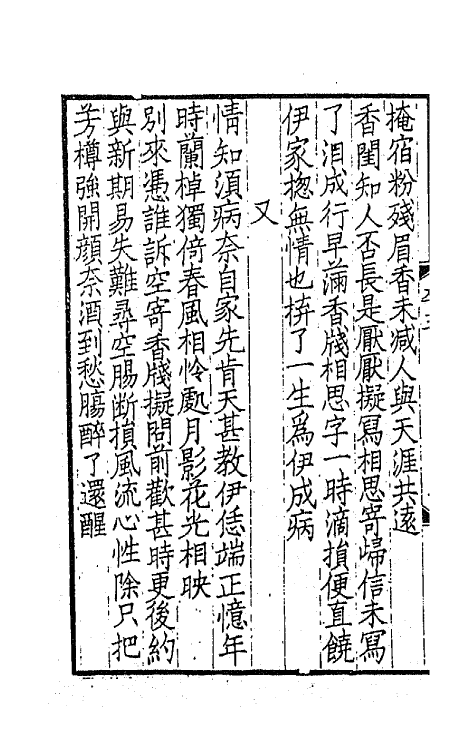 掩宿粉殘眉香未减人與天涯共遠
香閨知人否長是厭厭擬寫相思寄歸信未寫
了淚成行早滿香牋相思字一時滴損便直饒
伊家揔無情也拚了一生爲伊成病
又
情知須病奈自家先肯天甚教伊恁端正憶年
時蘭棹獨倚春風相怜處月影花光相映
別來憑誰訴空寄香牋擬問前歡甚時更後約
與新期易失難尋空腸断損風流心性除只把
芳樽強開顔奈酒到愁腸醉了還醒